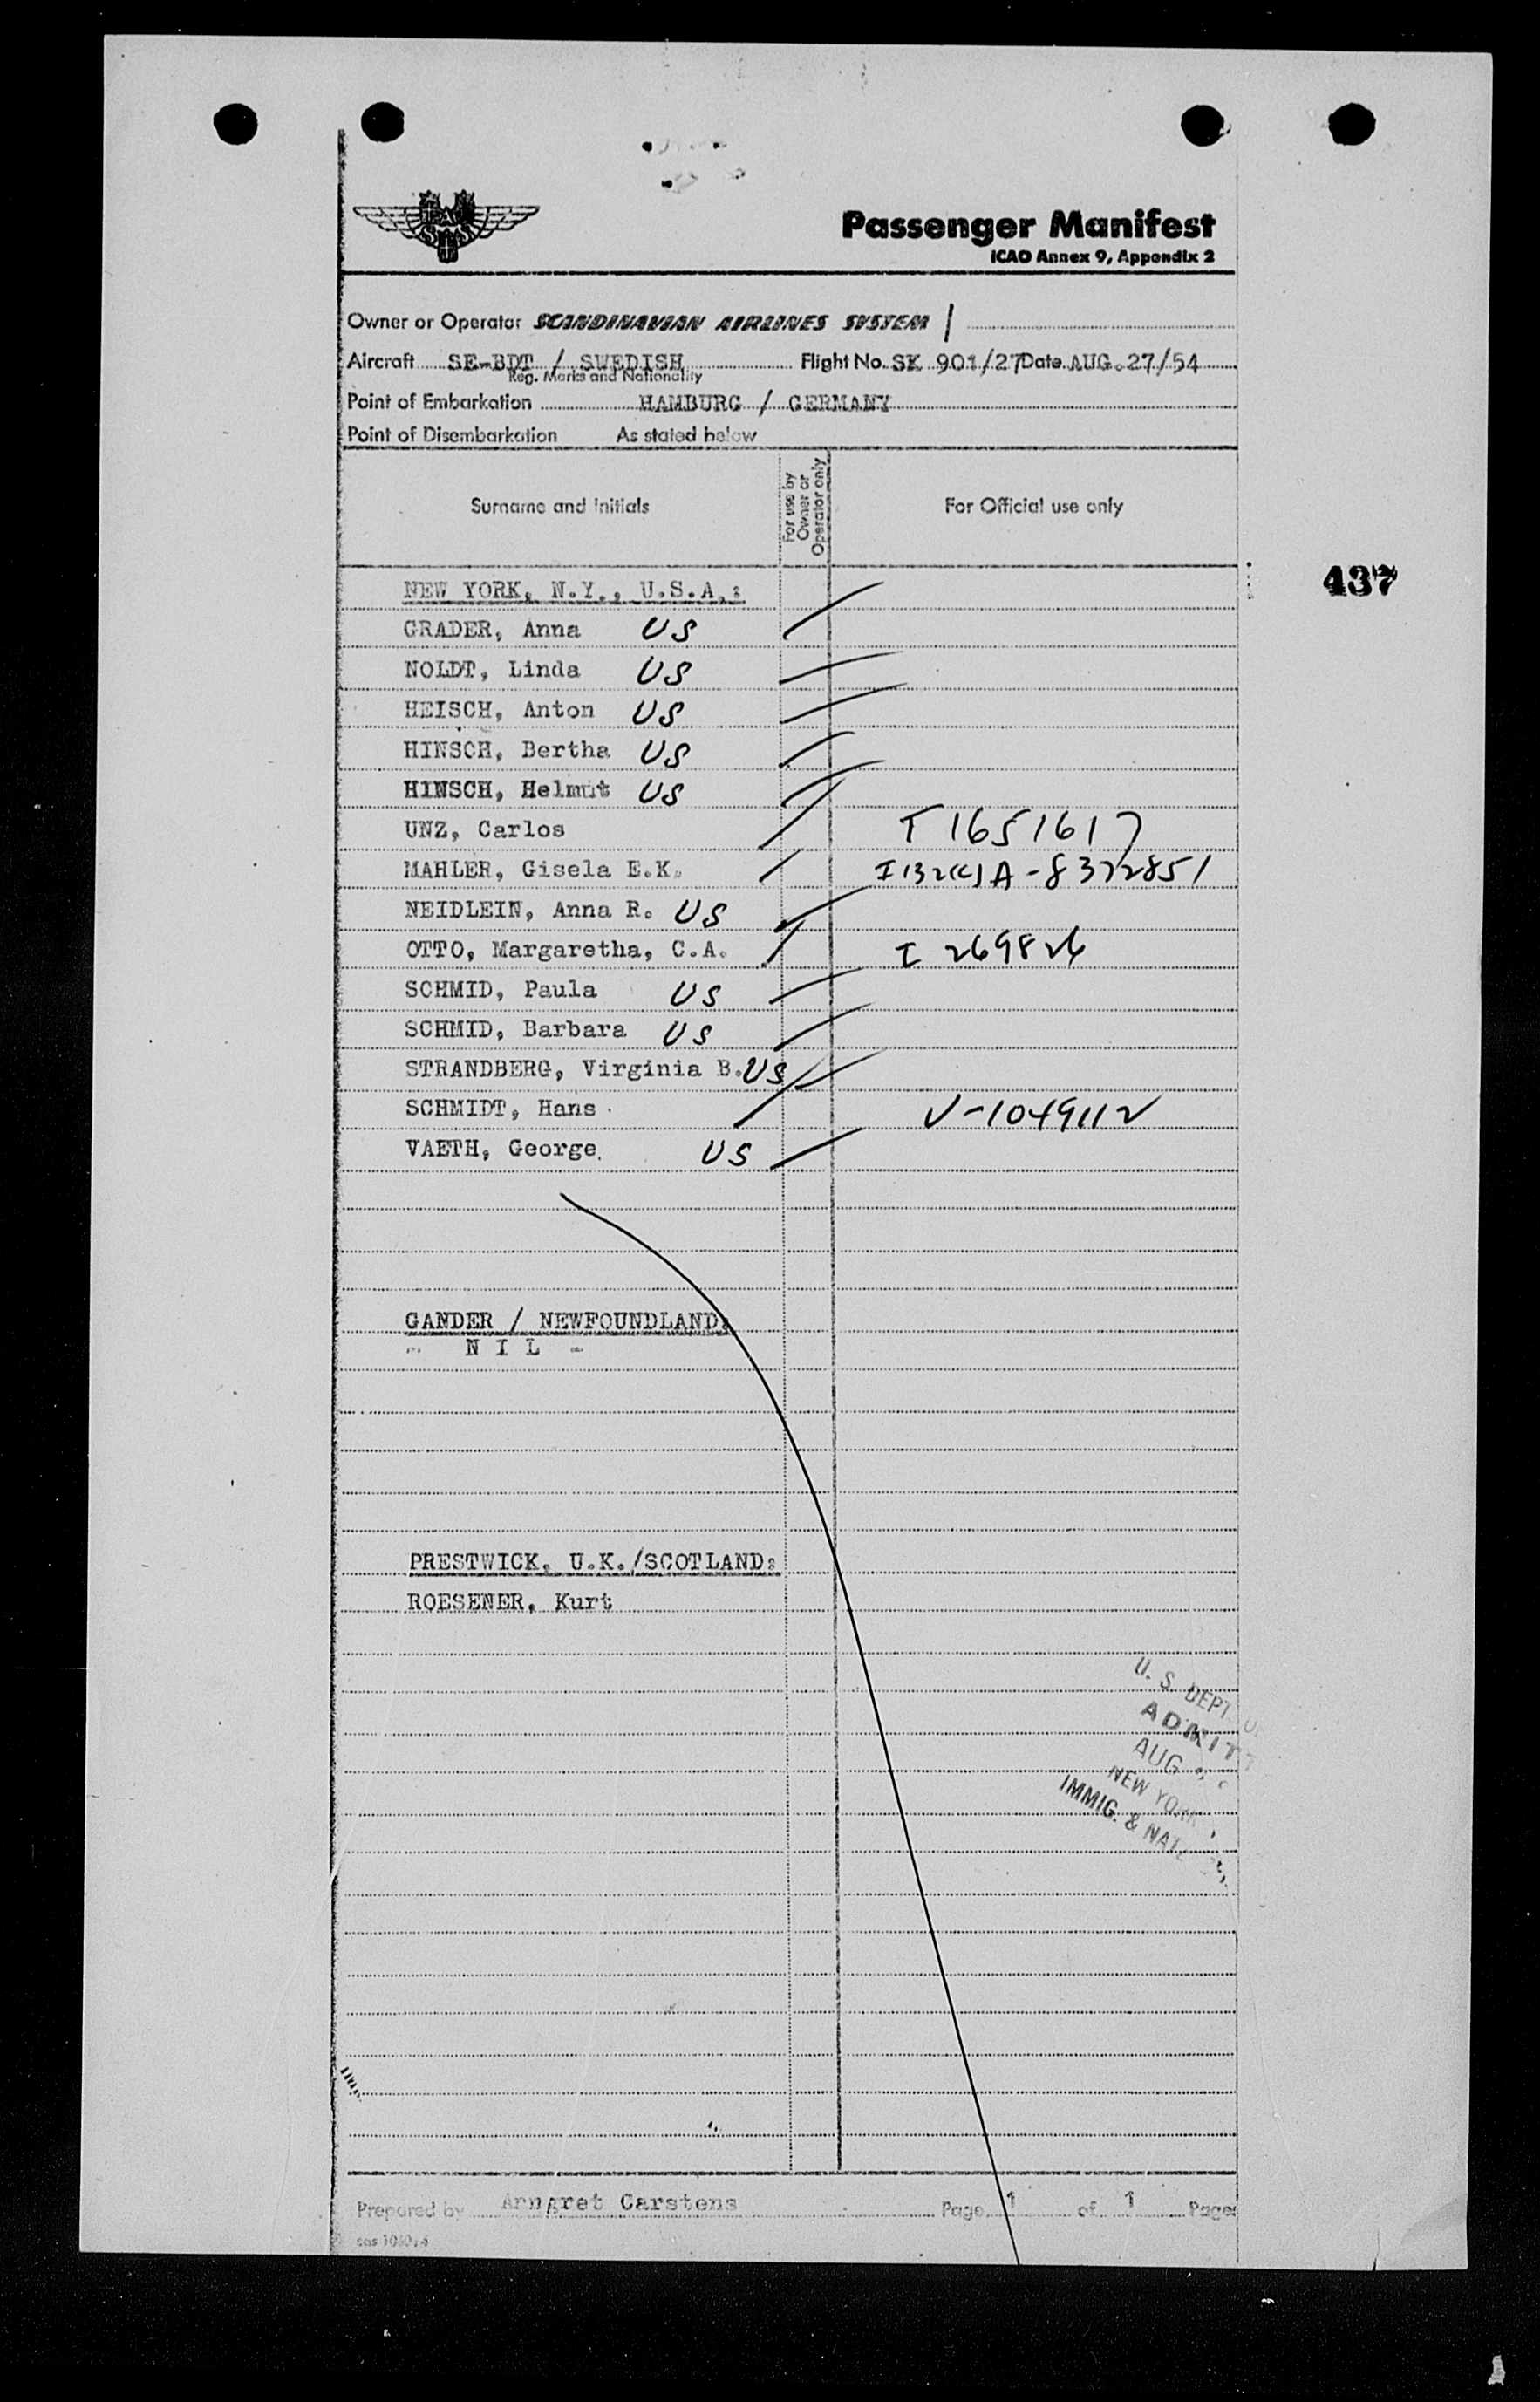 SAS
Passenger Manifest
ICAO Annex 9, Appendix 2
Owner or Operator SCANDINAVIAN AIRLINES SYSTEM
Aircraft SE-BDT / SWEDISH Flight No. SK 901/27 Date AUG. 27/54
Reg. Marks and Nationality
Point of Embarkation HAMBURG / GERMANY
Point of Disembarkation As stated below
Surname and Initials For use by Owner or Operator only For Official use only
437
NEW YORK, N.Y., U.S.A.:
GRADER, Anna US
NOLDT, Linda US
HEISCH, Anton US
HINSCH, Bertha US
HINSCH, Helmut US
UNZ, Carlos T 1651617
MAHLER, Gisela E.K. A-8372851
NEIDLEIN, Anna R. US
OTTO, Margaretha, C.A. I 269826
SCHMID, Paula US
SCHMID, Barbara US
STRANDBERG, Virginia B. US
SCHMIDT, Hans V-1049112
VAETH, George US
GANDER / NEWFOUNDLAND:
- N I L -
PRESTWICK, U.K./SCOTLAND:
ROESENER, Kurt
U. S. DEPT.
ADMITT
AUG
NEW YORK
IMMIG. & NAT
Prepared by Anngret Carstens Page 1 of 1 Pages